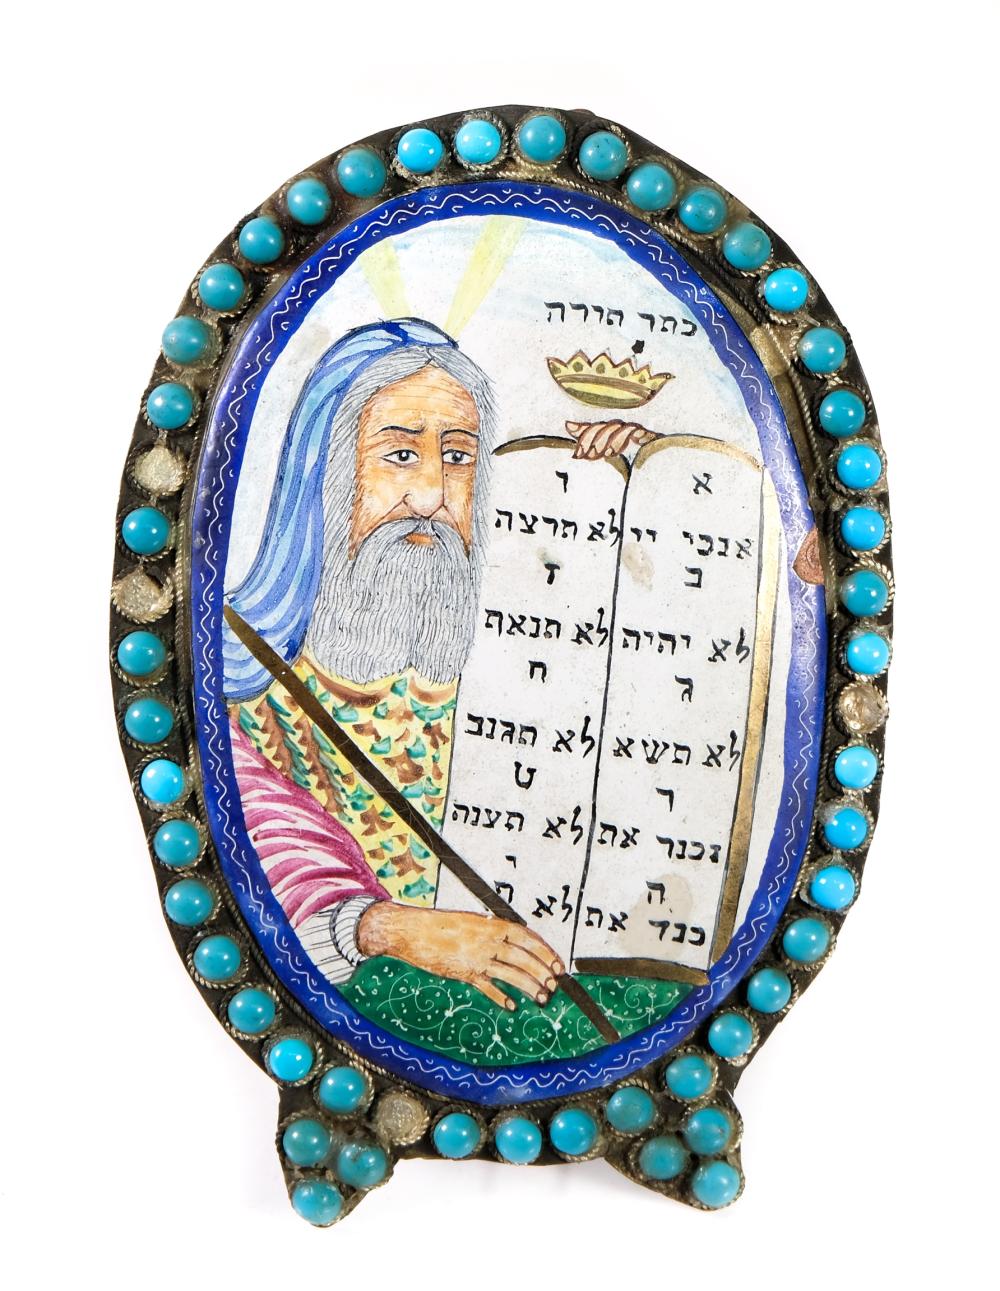 כתר תורה
א
אנכי יי
ב
לא יהיה
ג
לא תשא
ד
זכור את
ה
כבד את
ו
לא תרצה
ז
לא תנאף
ח
לא תגנב
ט
לא תענה
י
לא ת